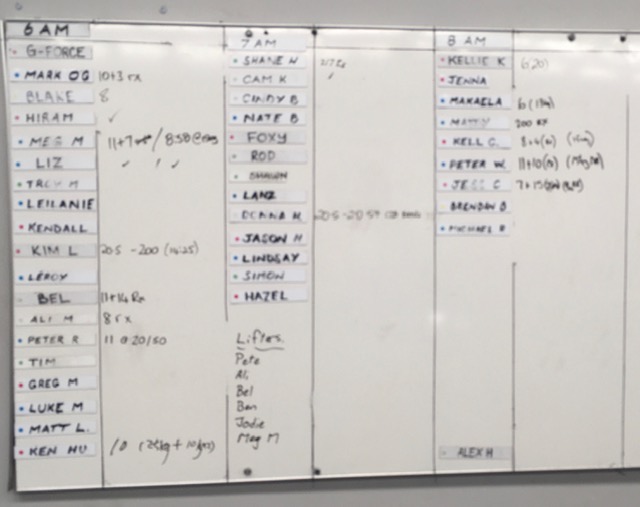 6 AM
G-FORCE
MARK OG 10+3 rx
BLAKE 8
HIRAM ✓
MEG M 11+7 / 8:58@
LIZ ✓ ✓ ✓
LEILANIE
KENDALL
KIM L 205 -200 (14:25)
LEROY
BEL 11+14 Rx
ALI M 8 rx
PETER R 11 @ 20/50
TIM
GREG M
LUKE M
MATT L.
KEN HU 10 (25kg + 10
7 AM
SHANE W
CAM K
CINDY B
NATE B
FOXY
ROD
SHAWN
LANZ
DONNA H 205 -20
JASON H
LINDSAY
SIMON
HAZEL
Lifters.
Pete
Ali
Bel
Ben
Jodie
Meg M
8 AM
KELLIE K
JENNA
MAKAELA 6
MATTY 200 RX
KELL C.
PETER W. 11+10
JESS C 7+15
BRENDAN B
MICHAEL B
ALEX H